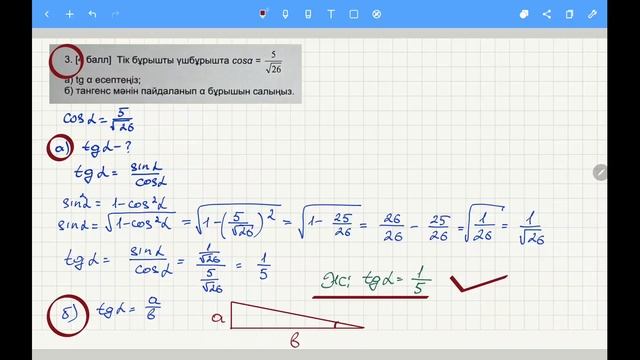 3. [4 балл] Тік бұрышты үшбұрышта cosα = 5/√26
а) tg α есептеңіз;
б) тангенс мәнін пайдаланып α бұрышын салыңыз.
cosα = 5/√26
а) tgα - ?
tgα = sinα/cosα
sin²α = 1-cos²α
sinα = √(1-cos²α) = √(1-(5/√26)²) = √(1 - 25/26) = 26/26 - 25/26 = √(1/26) = 1/√26
tgα = sinα/cosα = (1/√26)/(5/√26) = 1/5
Ж: tgα = 1/5
б) tgα = a/b
a
b